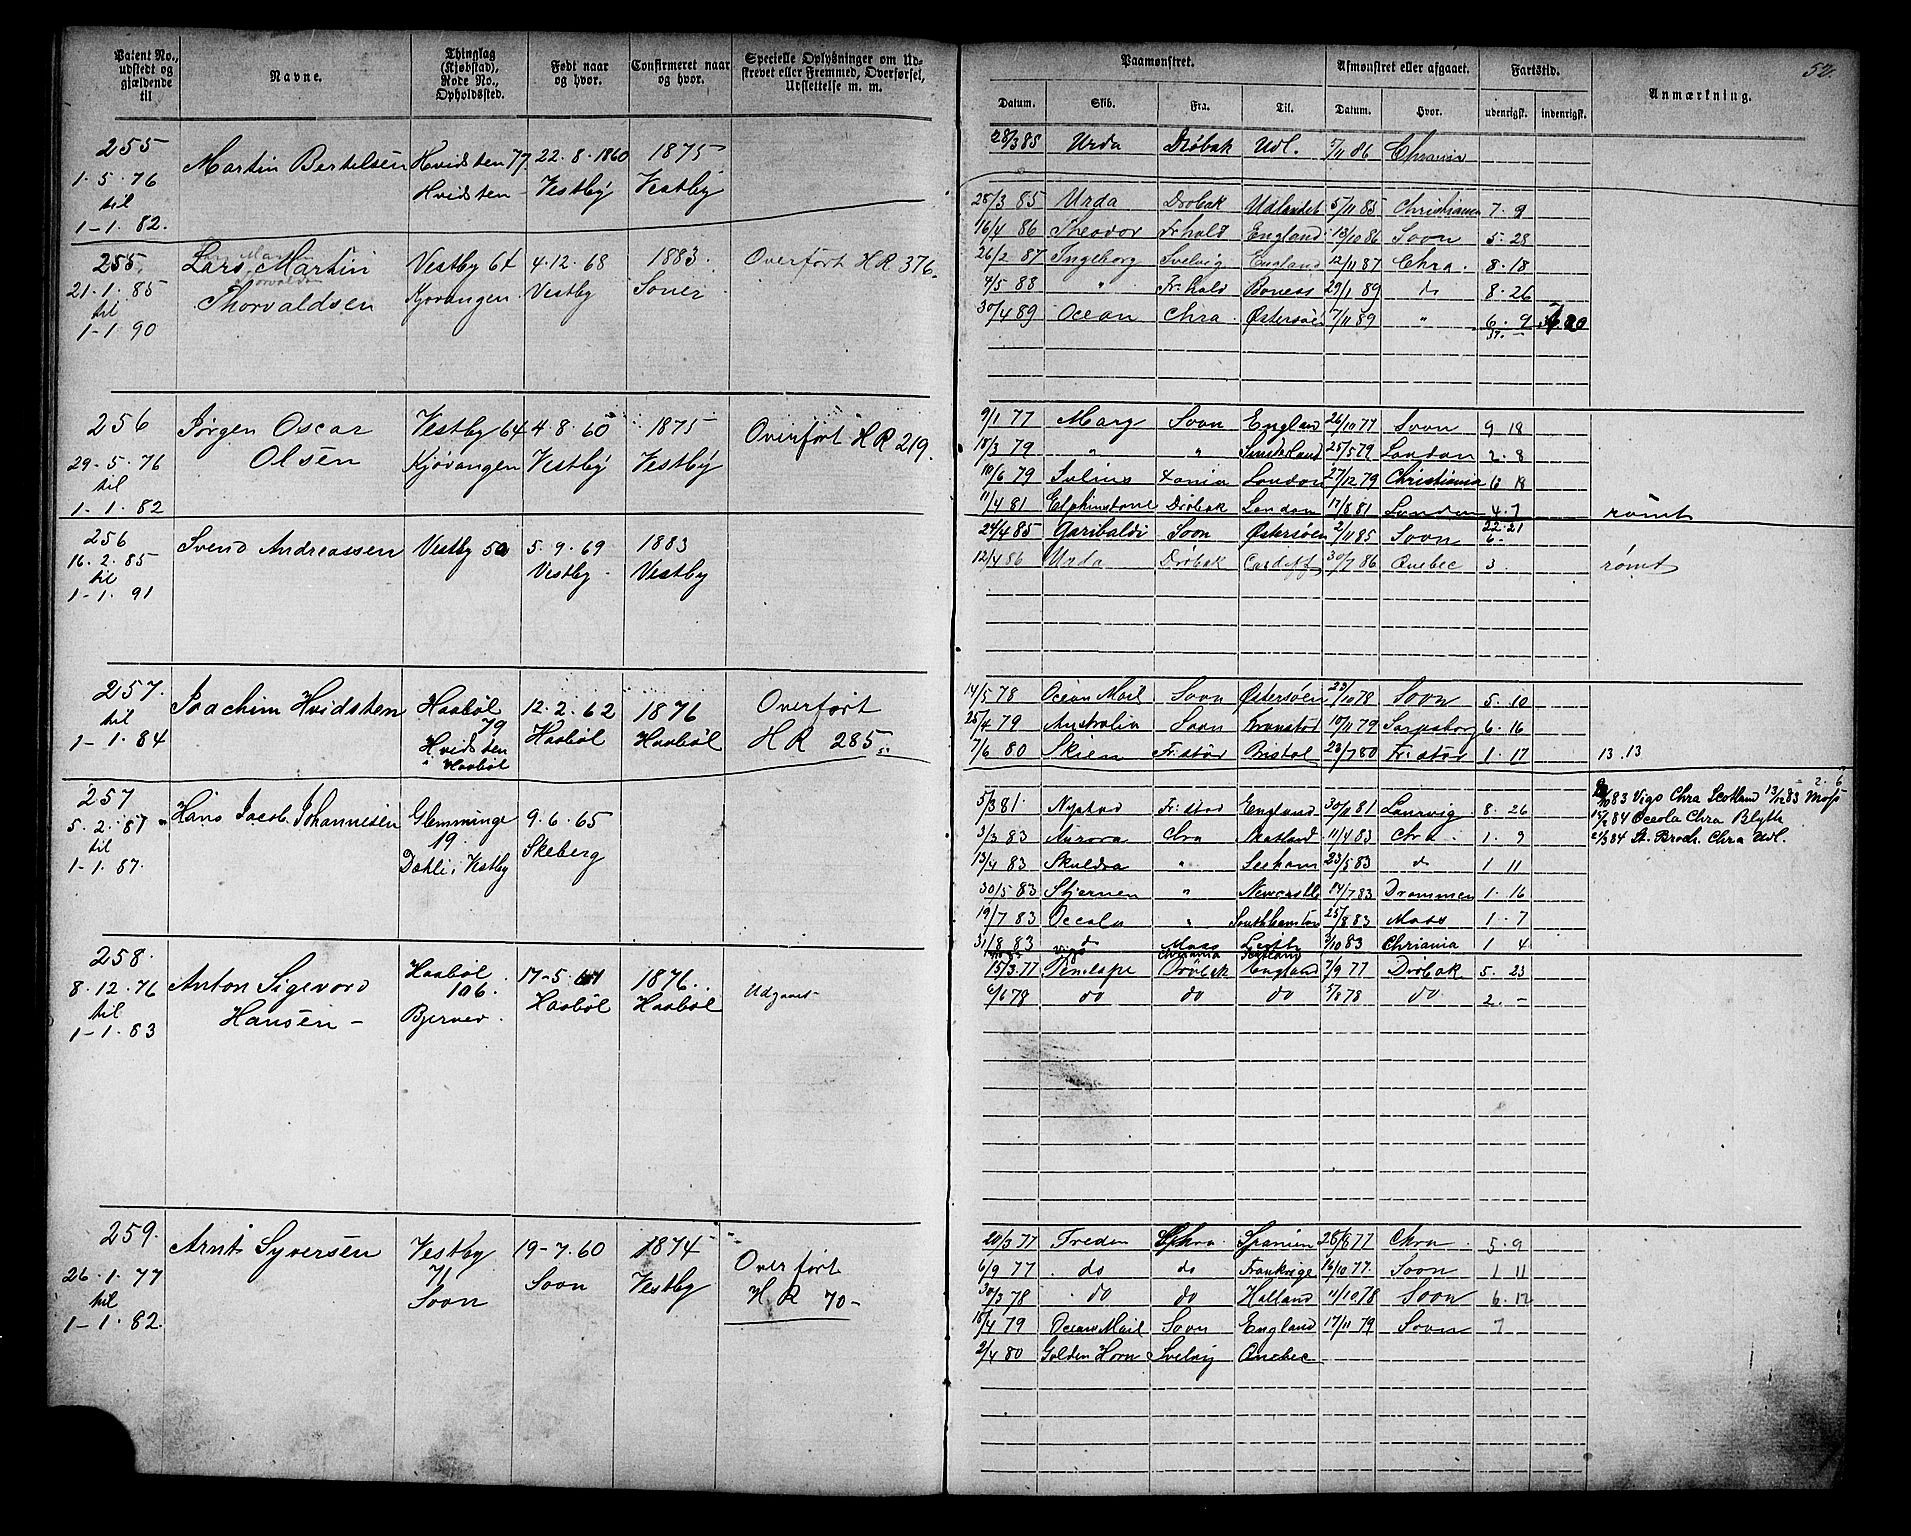 Patent No., udstedt og gjældende til
Navne.
Thinglag (Kjøbstad), Rode No., Opholdssted.
Født naar og hvor.
Confirmeret naar og hvor.
Specielle Oplysninger om Udskrevet eller Fremmed, Overførsel, Udslettelse m. m.
255
1. 5. 76
til
1-1. 82.
Martin Bertelsen
Hvidsten 77.
Hvidsten
22. 8. 1860
Vestby
1875
Vestby
255
21. 1. 85
til
1-1. 90
Lars Martin
Thorvaldsen
Vestby 64
Kjøvangen
4. 12. 68
Vestby
1883.
Soner
Overført HR 376.
256
29. 5. 76
til
1-1. 82
Jørgen Oscar
Olsen
Vestby 64
Kjøvangen
4. 8. 60
Vestby
1875
Vestby
Overført HR 219.
256
16. 2. 85
til
1-1. 91
Svend Andreassen
Vestby 50
5. 9. 69
Vestby
1883
Vestby
257.
til
1-1. 84
Joachim Hvidsten
Haabøl
79
Hvidsten
i Haabøl
12. 2. 62
Haabøl
1876
Haabøl
Overført
HR 285.
257
5. 2. 81
til
1-1. 87.
Hans Jacob Johannesen
Glemminge
19.
Dahle i Vestby
9. 6. 65
Skeberg
258.
8. 12. 76
til
1-1. 83
Anton Sigevord
Hansen -
Haabøl
106.
Bjerver.
17-5. 61
Haabøl
1876.
Haabøl
Udgaaet
259.
26. 1. 77
til
1-1. 82.
Arnt Syversen
Vestby
71
Soon
19-7. 60
Soon
1874
Vestby
Overført
H. R 70-
52.
Paamønstret.
Afmønstret eller afgaaet.
Fartstid.
Anmærkning.
Datum.
Skib.
Fra.
Til.
Datum.
Hvor.
udenrigsk.
indenrigsk.
28/3 85 Urda Drøbak Udl. 5/11 86 Chrania
28/3 85 Urda Drøbak Udlandet 5/11 85 Christiania 7. 9
16/4 86 Theodor Fr:hald England 13/10 86 Soon 5. 28
26/2 87 Ingeborg Svelvig England 12/11 87 Chra. 8. 18
4/5 88 " Fr:hald Boness 29/1 89 do 8. 26
30/4 89 Ocean Chra. Østersøen 7/11 89 " 6. 9
9/1 77 Marg Soon England 26/10 77 Soon 9 18
18/3 79 " " Sunderland 25/5 79 London 2. 8
10/6 79 Julius Xania London 27/12 79 Christiania 6 18
11/4 81 Elphinstone Drøbak London 17/8 81 London 4. 7 rømt
22. 21
24/4 85 Garibaldi Soon Østersøen 2/11 85 Soon 6 -
12/4 86 Urda Drøbak Cardiff 30/7 86 Quebec 3 rømt
14/5 78 Ocean Mail Soon Østersøen 23/10 78 Soon 5. 10
25/4 79 Australia Soon Kronstad 10/11 79 Sarpsborg 6. 16
7/6 80 Skien Fr:stad Bristol 23/7 80 Fr:stad 1. 17 13. 13
5/3 81. Nystad Fr:stad England 30/11 81 Laurvig 8. 26
/10 83 Vigo Chra Scotland 13/12 83 Moss - 2. 6
3/3 83 Aurora Chra Skotland 11/4 83 Chra 1. 9
/2 84 Oceola Chra Blyth
/3 84 St. Brodr. Chra Udl.
13/4 83 Skuldra " Seeham 23/5 83 do 1 11
30/5 83 Stjernen " Newcastle 14/7 83 Drammen 1. 16
19/7 83 Oceola " Southamton 25/8 83 Moss 1. 7
31/8 83 do Moss Leith /10 83 Chriania 1 4
Vigo Chriania Scotland
15/3 77 Penelope Drøbak England 7/9 77 Drøbak 5. 23
6/6 78 do do do 5/8 78 do 2. -
20/3 77 Freden Chra. Spanien 28/8 77 Chra. 5. 9
6/9 77 do do Frankrige 16/10 77. Soon 1 11
30/3 78 do do Holland 11/10 78 Soon 6. 12
18/4 79 Ocean Mail Soon England 17/11 79 Soon 7
2/4 80 Golden Horn Svelvig Quebec